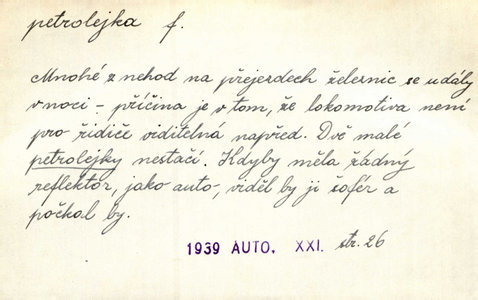 petrolejka f.
Mnohé z nehod na přejezdech železnic se udály
v noci - příčina je v tom, že lokomotiva není
pro řidiče viditelná napřed. Dvě malé
petrolejky nestačí. Kdyby měla řádný
reflektor, jako auto, viděl by ji šofér a
počkal by.
1939 AUTO. XXI. str. 26